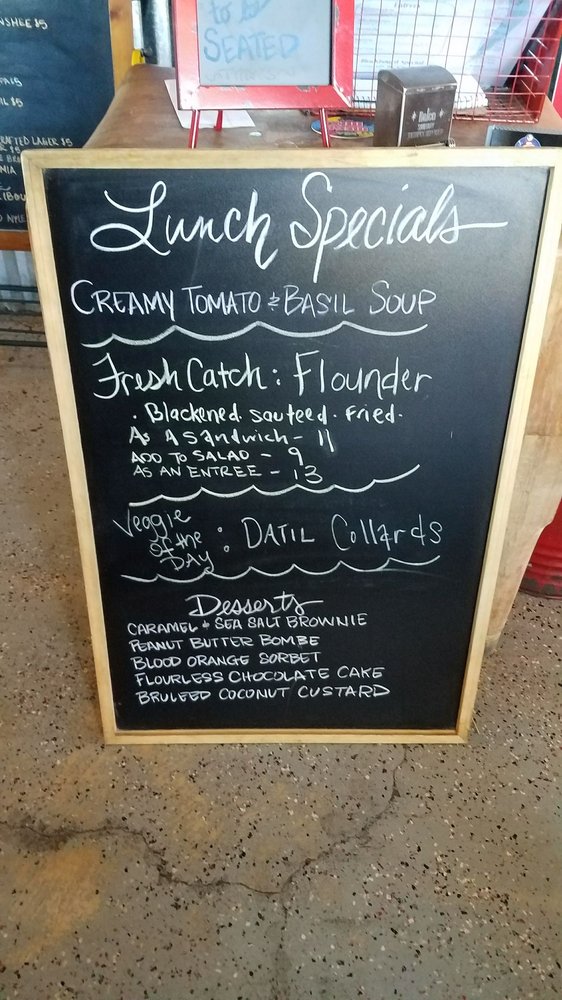 to be
SEATED
NSHEE $5
LAGER $5
Lunch Specials
CREAMY TOMATO & BASIL SOUP
Fresh Catch: Flounder
· Blackened · sauteed · fried ·
As A sandwich - 11
ADD TO SALAD - 9
AS AN ENTREE - 13
Veggie
of the
DAY
: DATIL Collards
Desserts
CARAMEL & SEA SALT BROWNIE
PEANUT BUTTER BOMBE
BLOOD ORANGE SORBET
FLOURLESS CHOCOLATE CAKE
BRULEED COCONUT CUSTARD